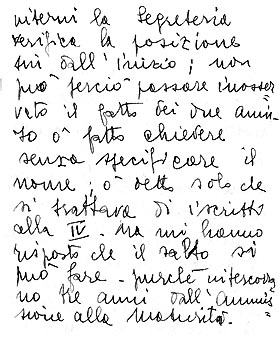 niterni la Segreteria
verifica la posizione
sui dall'inizio; non
può perciò passare inosser
vato il fatto dei due anni-
Io ò fatto chiedere
senza specificare il
nome; ò detto solo che
si trattava di iscritto
alla IV. Ma mi hanno
risposto che il salto si
può fare - purché intercorra
no tre anni dall'ammis
sione alla maturità.